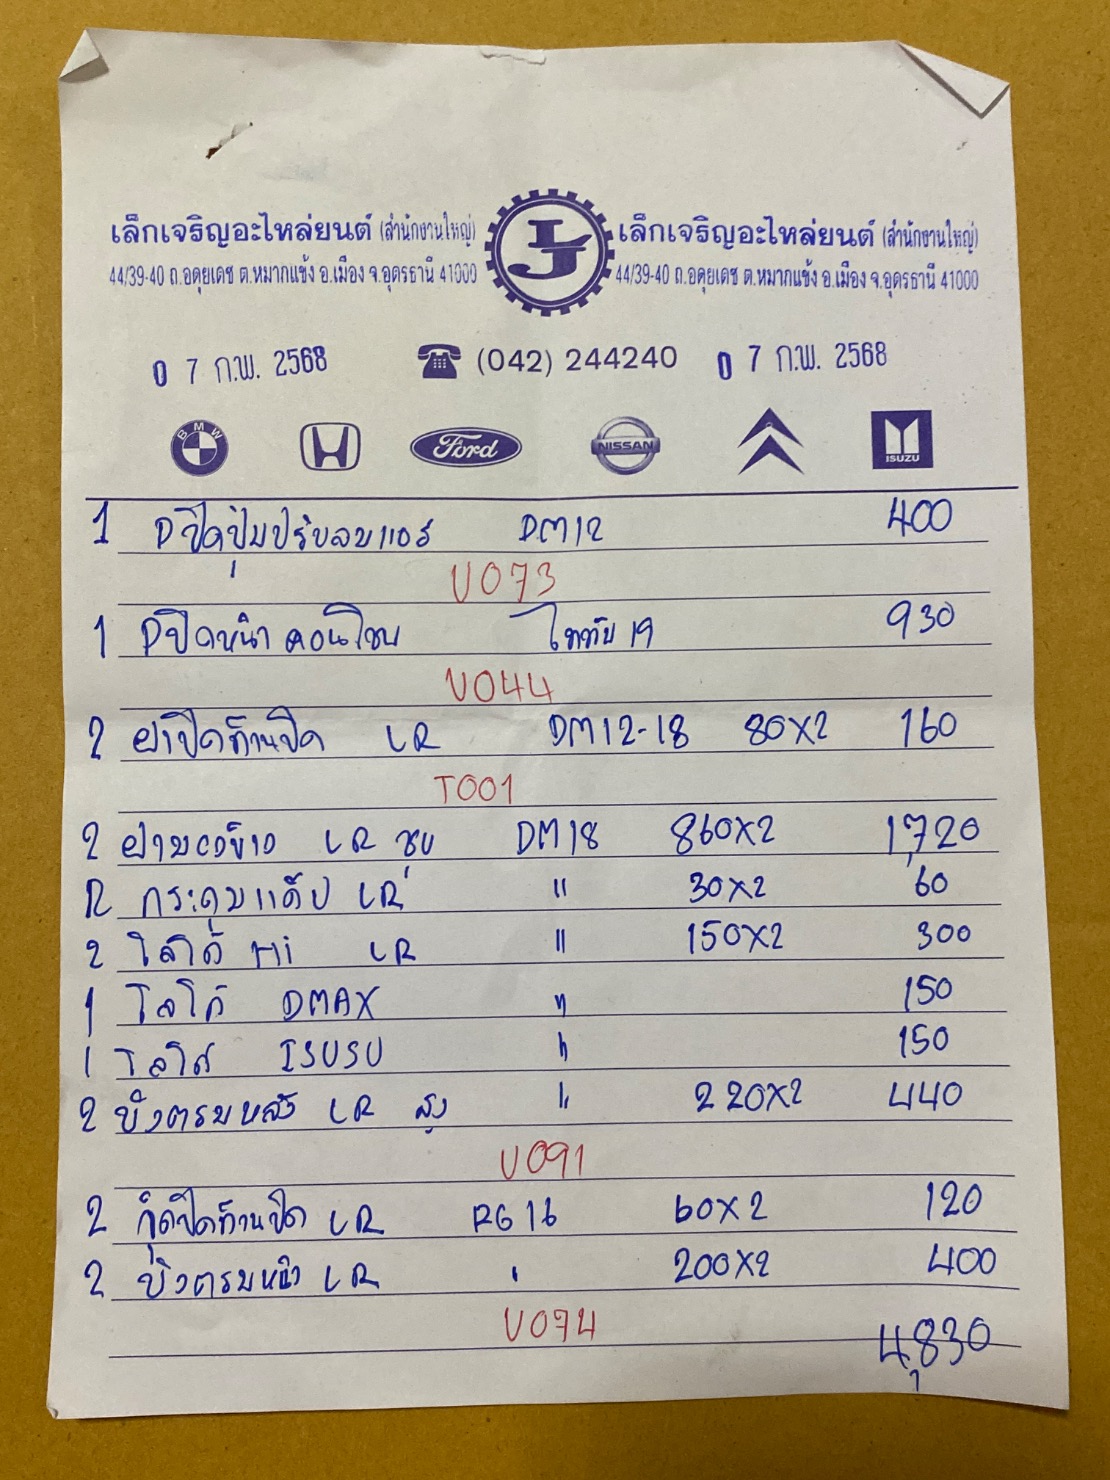 เล็กเจริญอะไหล่ยนต์ (สำนักงานใหญ่) เล็กเจริญอะไหล่ยนต์ (สำนักงานใหญ่)
44/39-40 ถ.อดุยเดช ต.หมากแข้ง อ.เมือง จ.อุดรธานี 41000 44/39-40 ถ.อดุยเดช ต.หมากแข้ง อ.เมือง จ.อุดรธานี 41000
0 7 ก.พ. 2568 (042) 244240 0 7 ก.พ. 2568
BMW Ford NISSAN ISUZU
1 ปิดปุ่มปรับลมแอร์ DM12 400
U073
1 ปิดหน้าคอนโซน ไททัน 19 930
U044
2 ฝาปิดก้านปัด LR DM12-18 80X2 160
T001
2 LR ชุบ DM18 860X2 1,720
2 กระดุมแค็ป LR " 30X2 60
2 โลโก้ Hi LR " 150X2 300
1 โลโก้ DMAX " 150
1 โลโก้ ISUSU " 150
2 บังตรมหลัง LR สูง " 220X2 440
U091
2 ปิดก้านปัด LR RG16 60X2 120
2 บังตรมหน้า LR " 200X2 400
U074
4,830